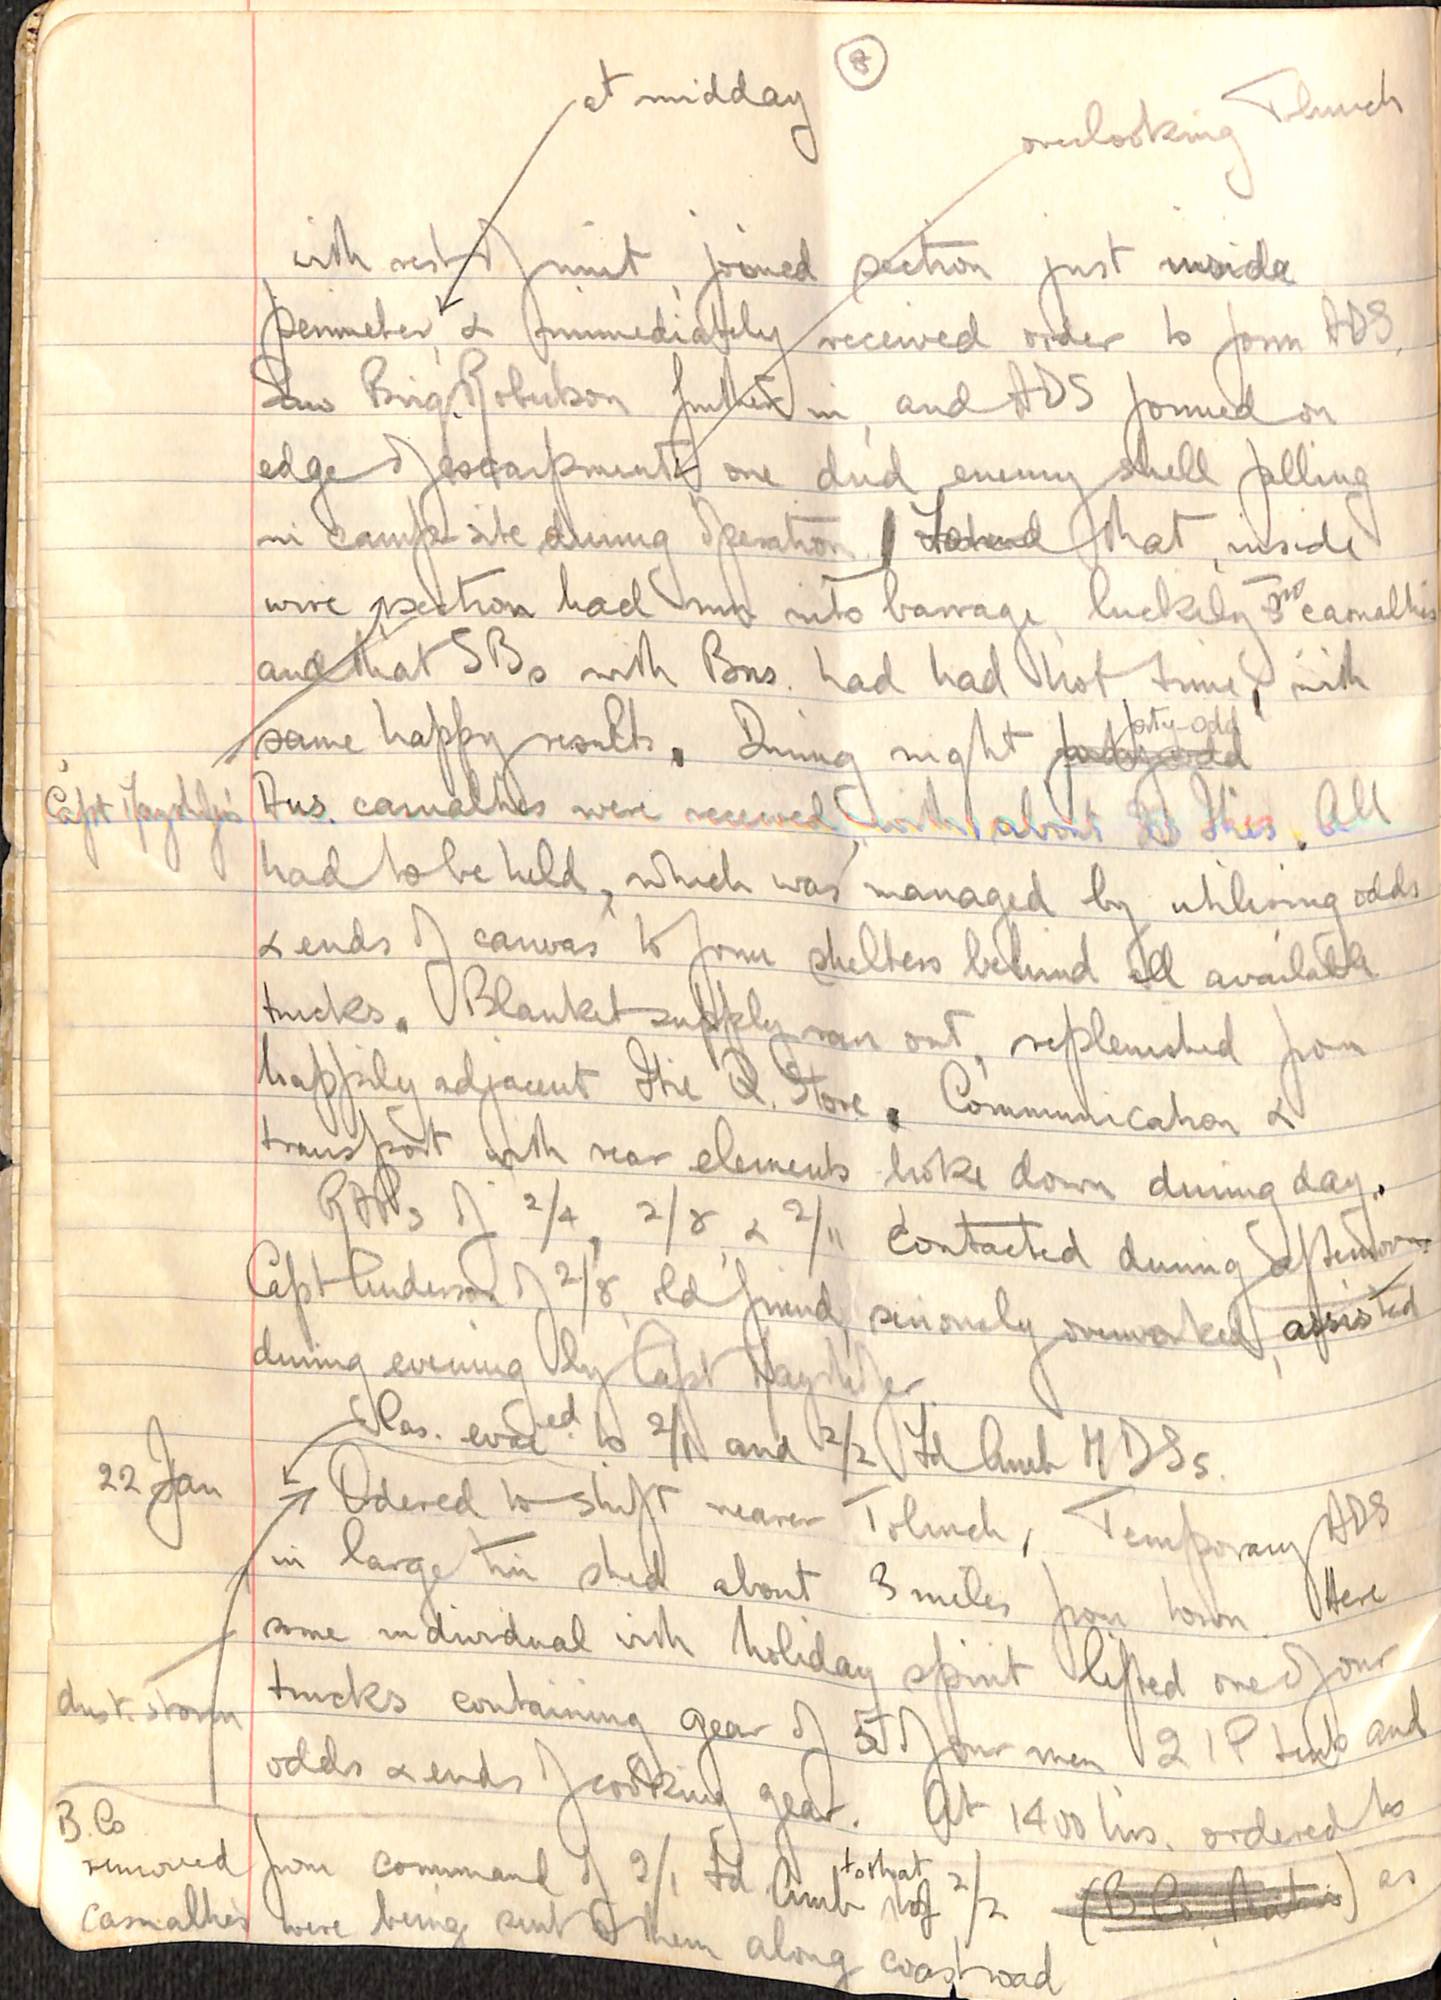 8
at midday
overlooking Tbruch
with rest of unit, joined section just inside
perimeter, & immediately received order to form ADS.
Saw Brig. Robertson further in, and ADS formed on
edge of escarpment, one dud enemy shell falling
in camp-site during operation. Found that, inside
wire, section had run into barrage, luckily no casualties
and that SBs with Bns. had had hot time, with
same happy results. During night forty odd
forty-odd
Capt
Aus. casualties were received, with about Ities. All
had to be held, which was managed by utilising odds
& ends of canvas to form shelters behind all available
trucks. Blanket supply ran out, replenished from
happily adjacent Itie Q. Store. Communication &
transport with rear elements broke down during day.
RAPs of 2/4, 2/8 & 2/11 contacted during afternoon
Capt Anderson of 2/8, old friend, seriously overworked, assisted
during evening by Capt
Cas. evaced to 2/1 and 2/2 Fd Amb MDSs.
22 Jan
Odered to shift nearer Tobruch, Temporary ADS
in large tin shed about 3 miles from town. Here
some individual with holiday spirit lifted one of our
dust. storm
trucks containing gear of 5 of our men 2 IP tents and
odds & ends of cooking gear. At 1400 hrs. ordered to
B. Co
removed from command of 2/1 Fd Amb to that of 2/2 (B Co.) as
casualties were being sent to them along coast road